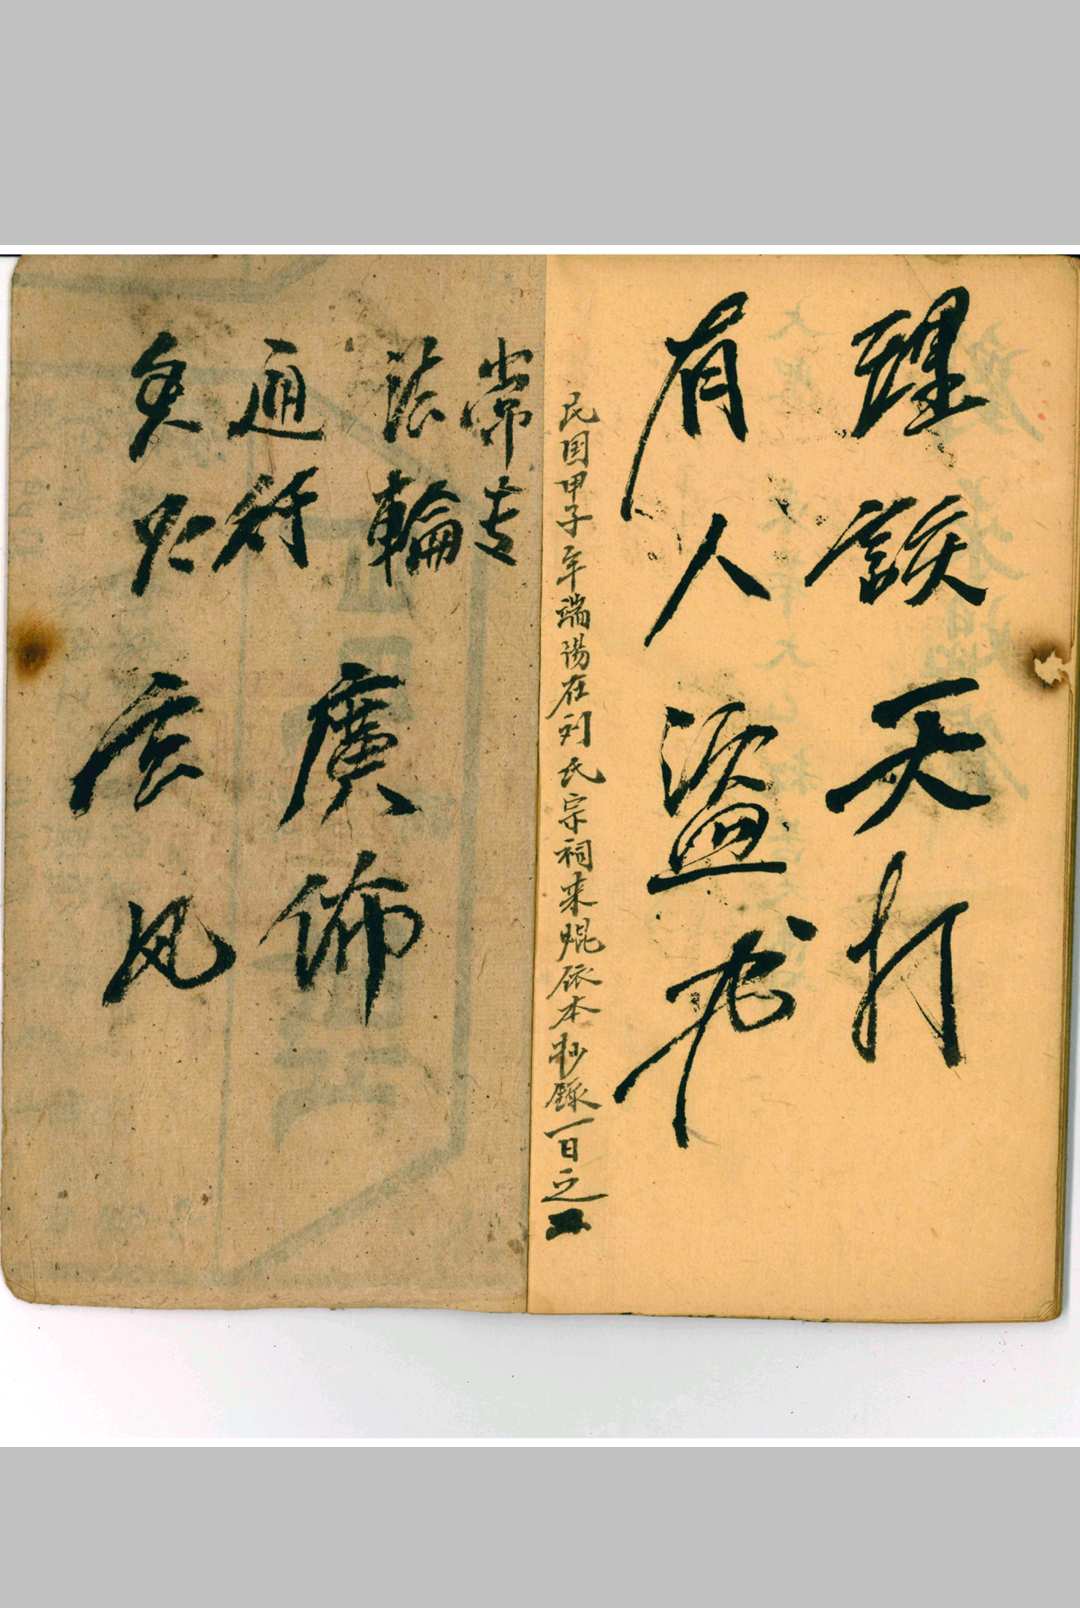 理該天打
有人盜书
民国甲子年端陽在刘氏宗祠来焜依本抄錄一日之
常
法輪
廣佈
通行
玄风